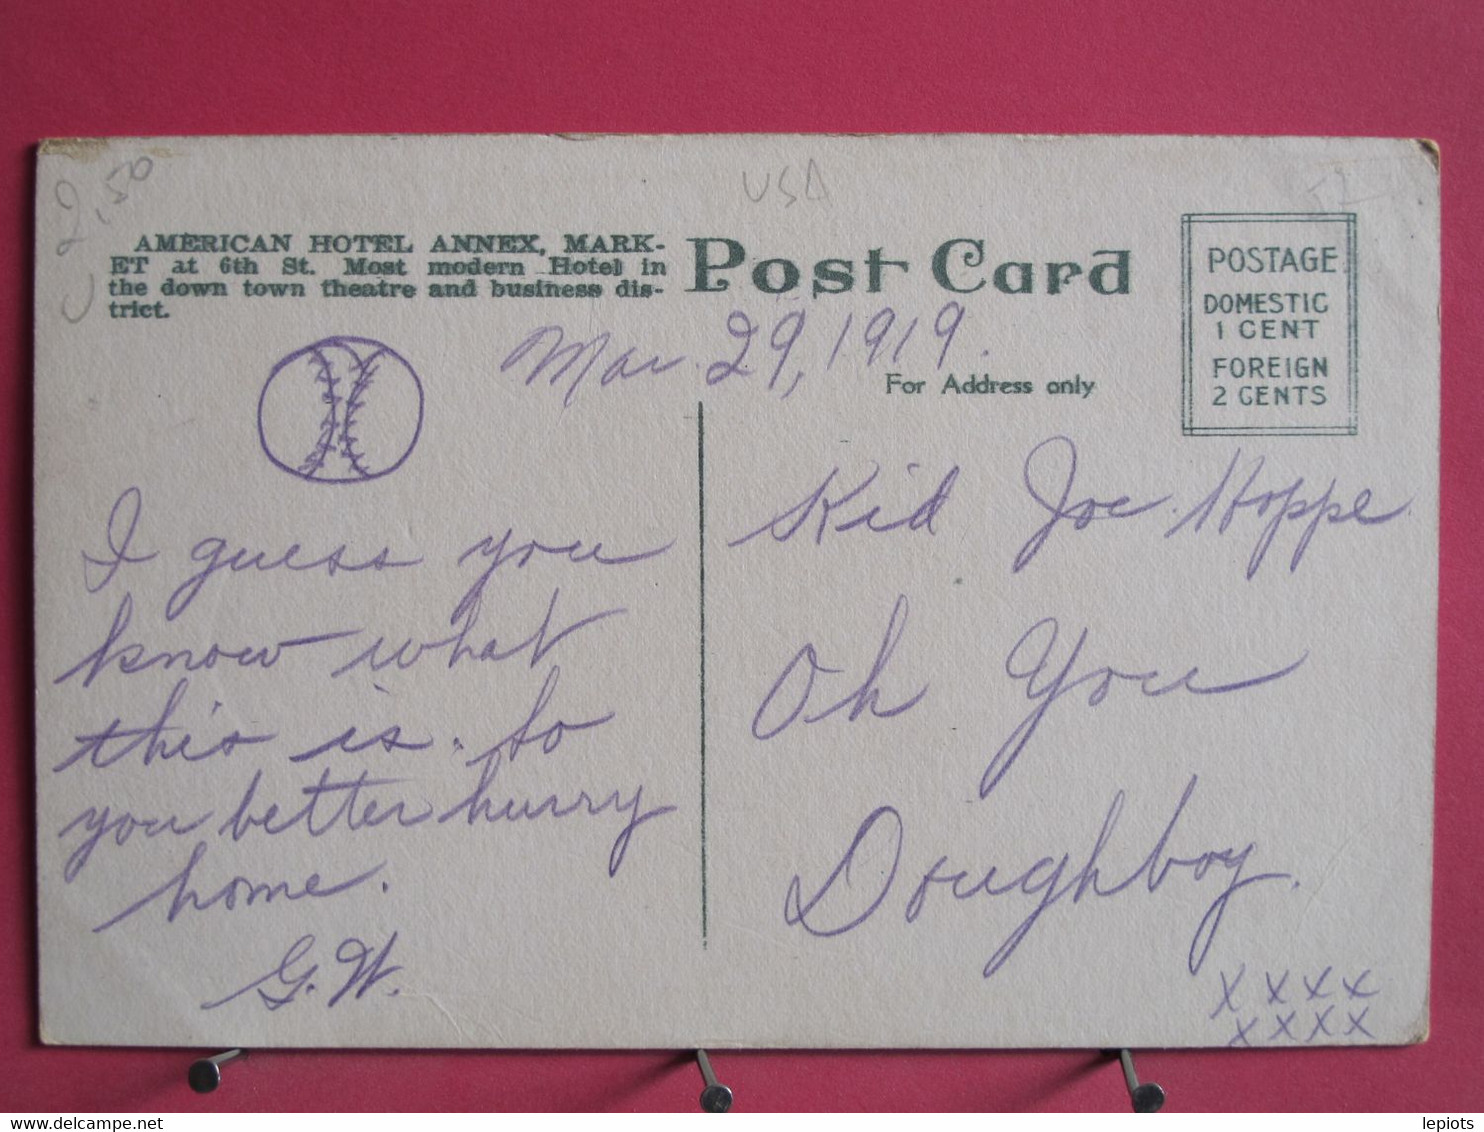 2,50
USA
AMERICAN HOTEL ANNEX, MARK-
ET at 6th St. Most modern Hotel in
the down town theatre and business dis-
trict.
Post Card
POSTAGE
DOMESTIC
1 CENT
FOREIGN
2 CENTS
Mar. 29, 1919.
For Address only
I guess you
know what
this is. So
you better hurry
home.
G.W.
Kid Joe Hoppe
Oh You
Doughboy.
x x x x
x x x x
lepiots